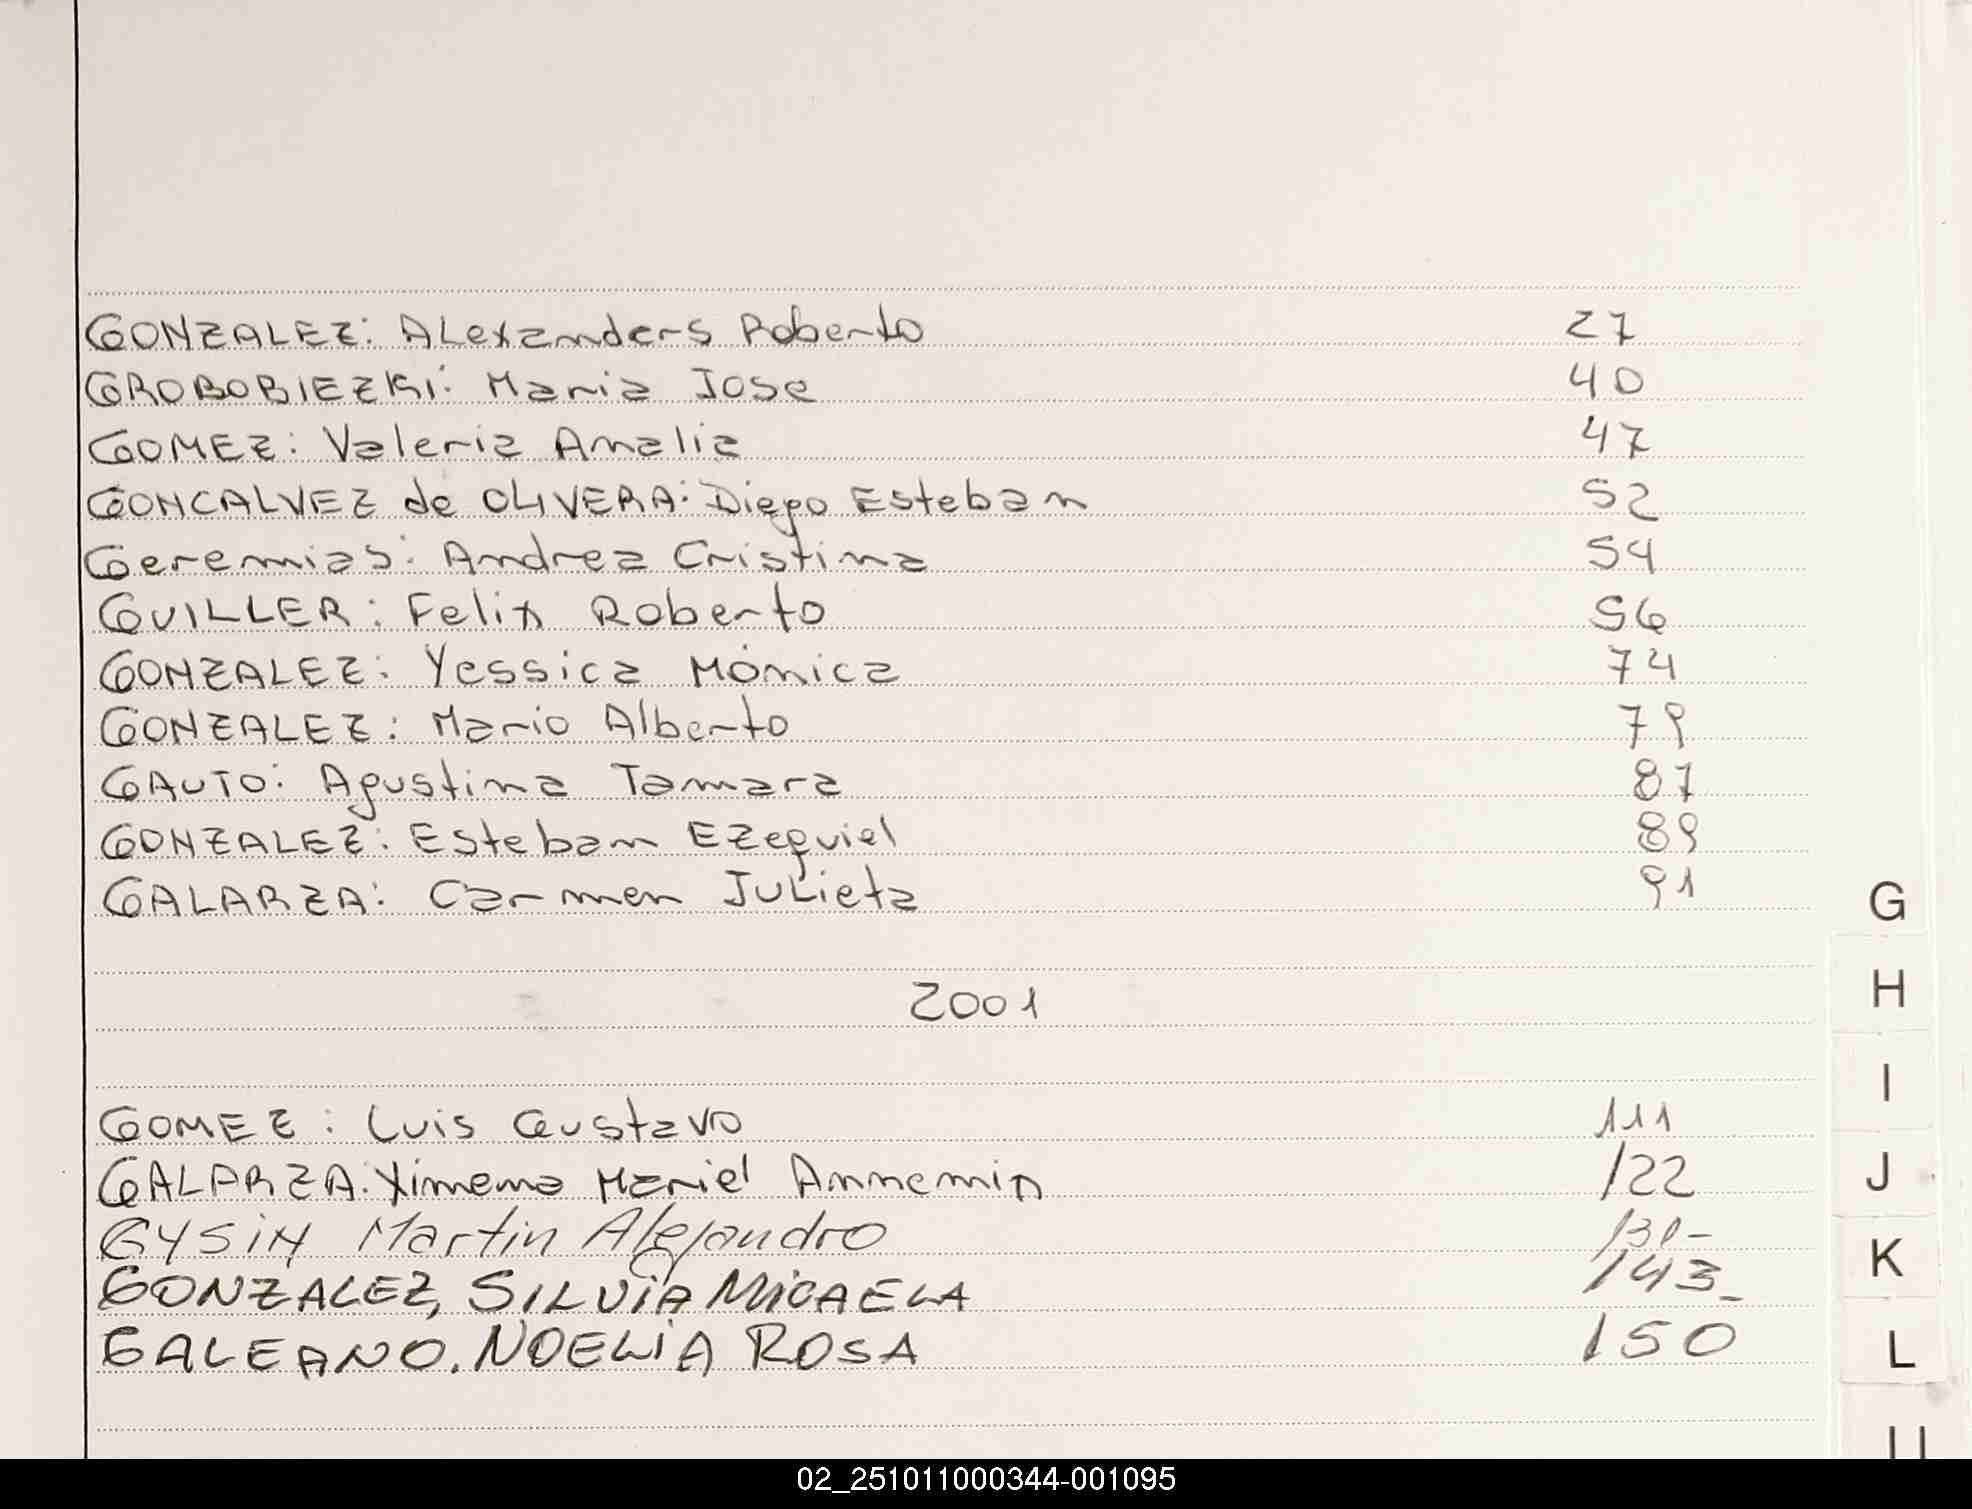 GONZALEZ: ALexanders Roberto 27
GROBOBIEZKI: Maria Jose 40
GOMEZ: Valeria Amalia 47
GONCALVEZ de OLIVERA: Diego Esteban 52
Geremias: Andrea Cristina 54
GUILLER: Felix Roberto 56
GONZALEZ: Yessica Mónica 74
GONZALEZ: Mario Alberto 79
GAUTO: Agustina Tamara 87
GONZALEZ: Esteban EZequiel 89
GALARZA: Carmen JULieta 91
G
H
2001
I
GOMEZ: Luis Gustavo 111
GALARZA: Ximena Mariel Annemin 122
J
GYSIN Martin Alejandro 131-
K
GONZALEZ, SILVIA MICAELA 143_
GALEANO. NOELIA ROSA 150
L
02_251011000344-001095